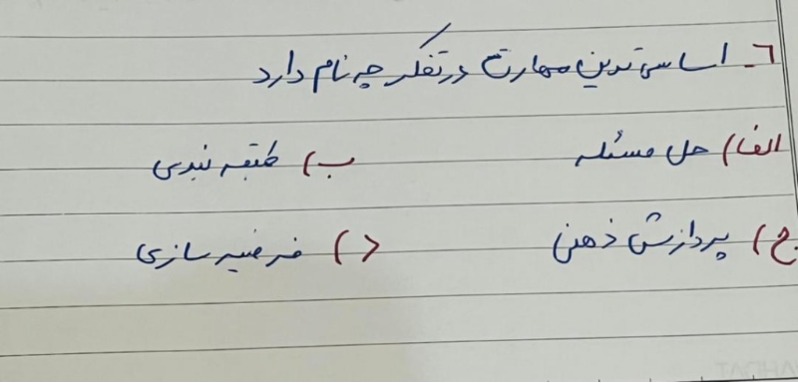 ٦- اساسی ترین مهارت در تفکر چه نام دارد
الف) حل مسئله ب) طبقه بندی
ج) پردازش ذهنی د) فرضیه سازی